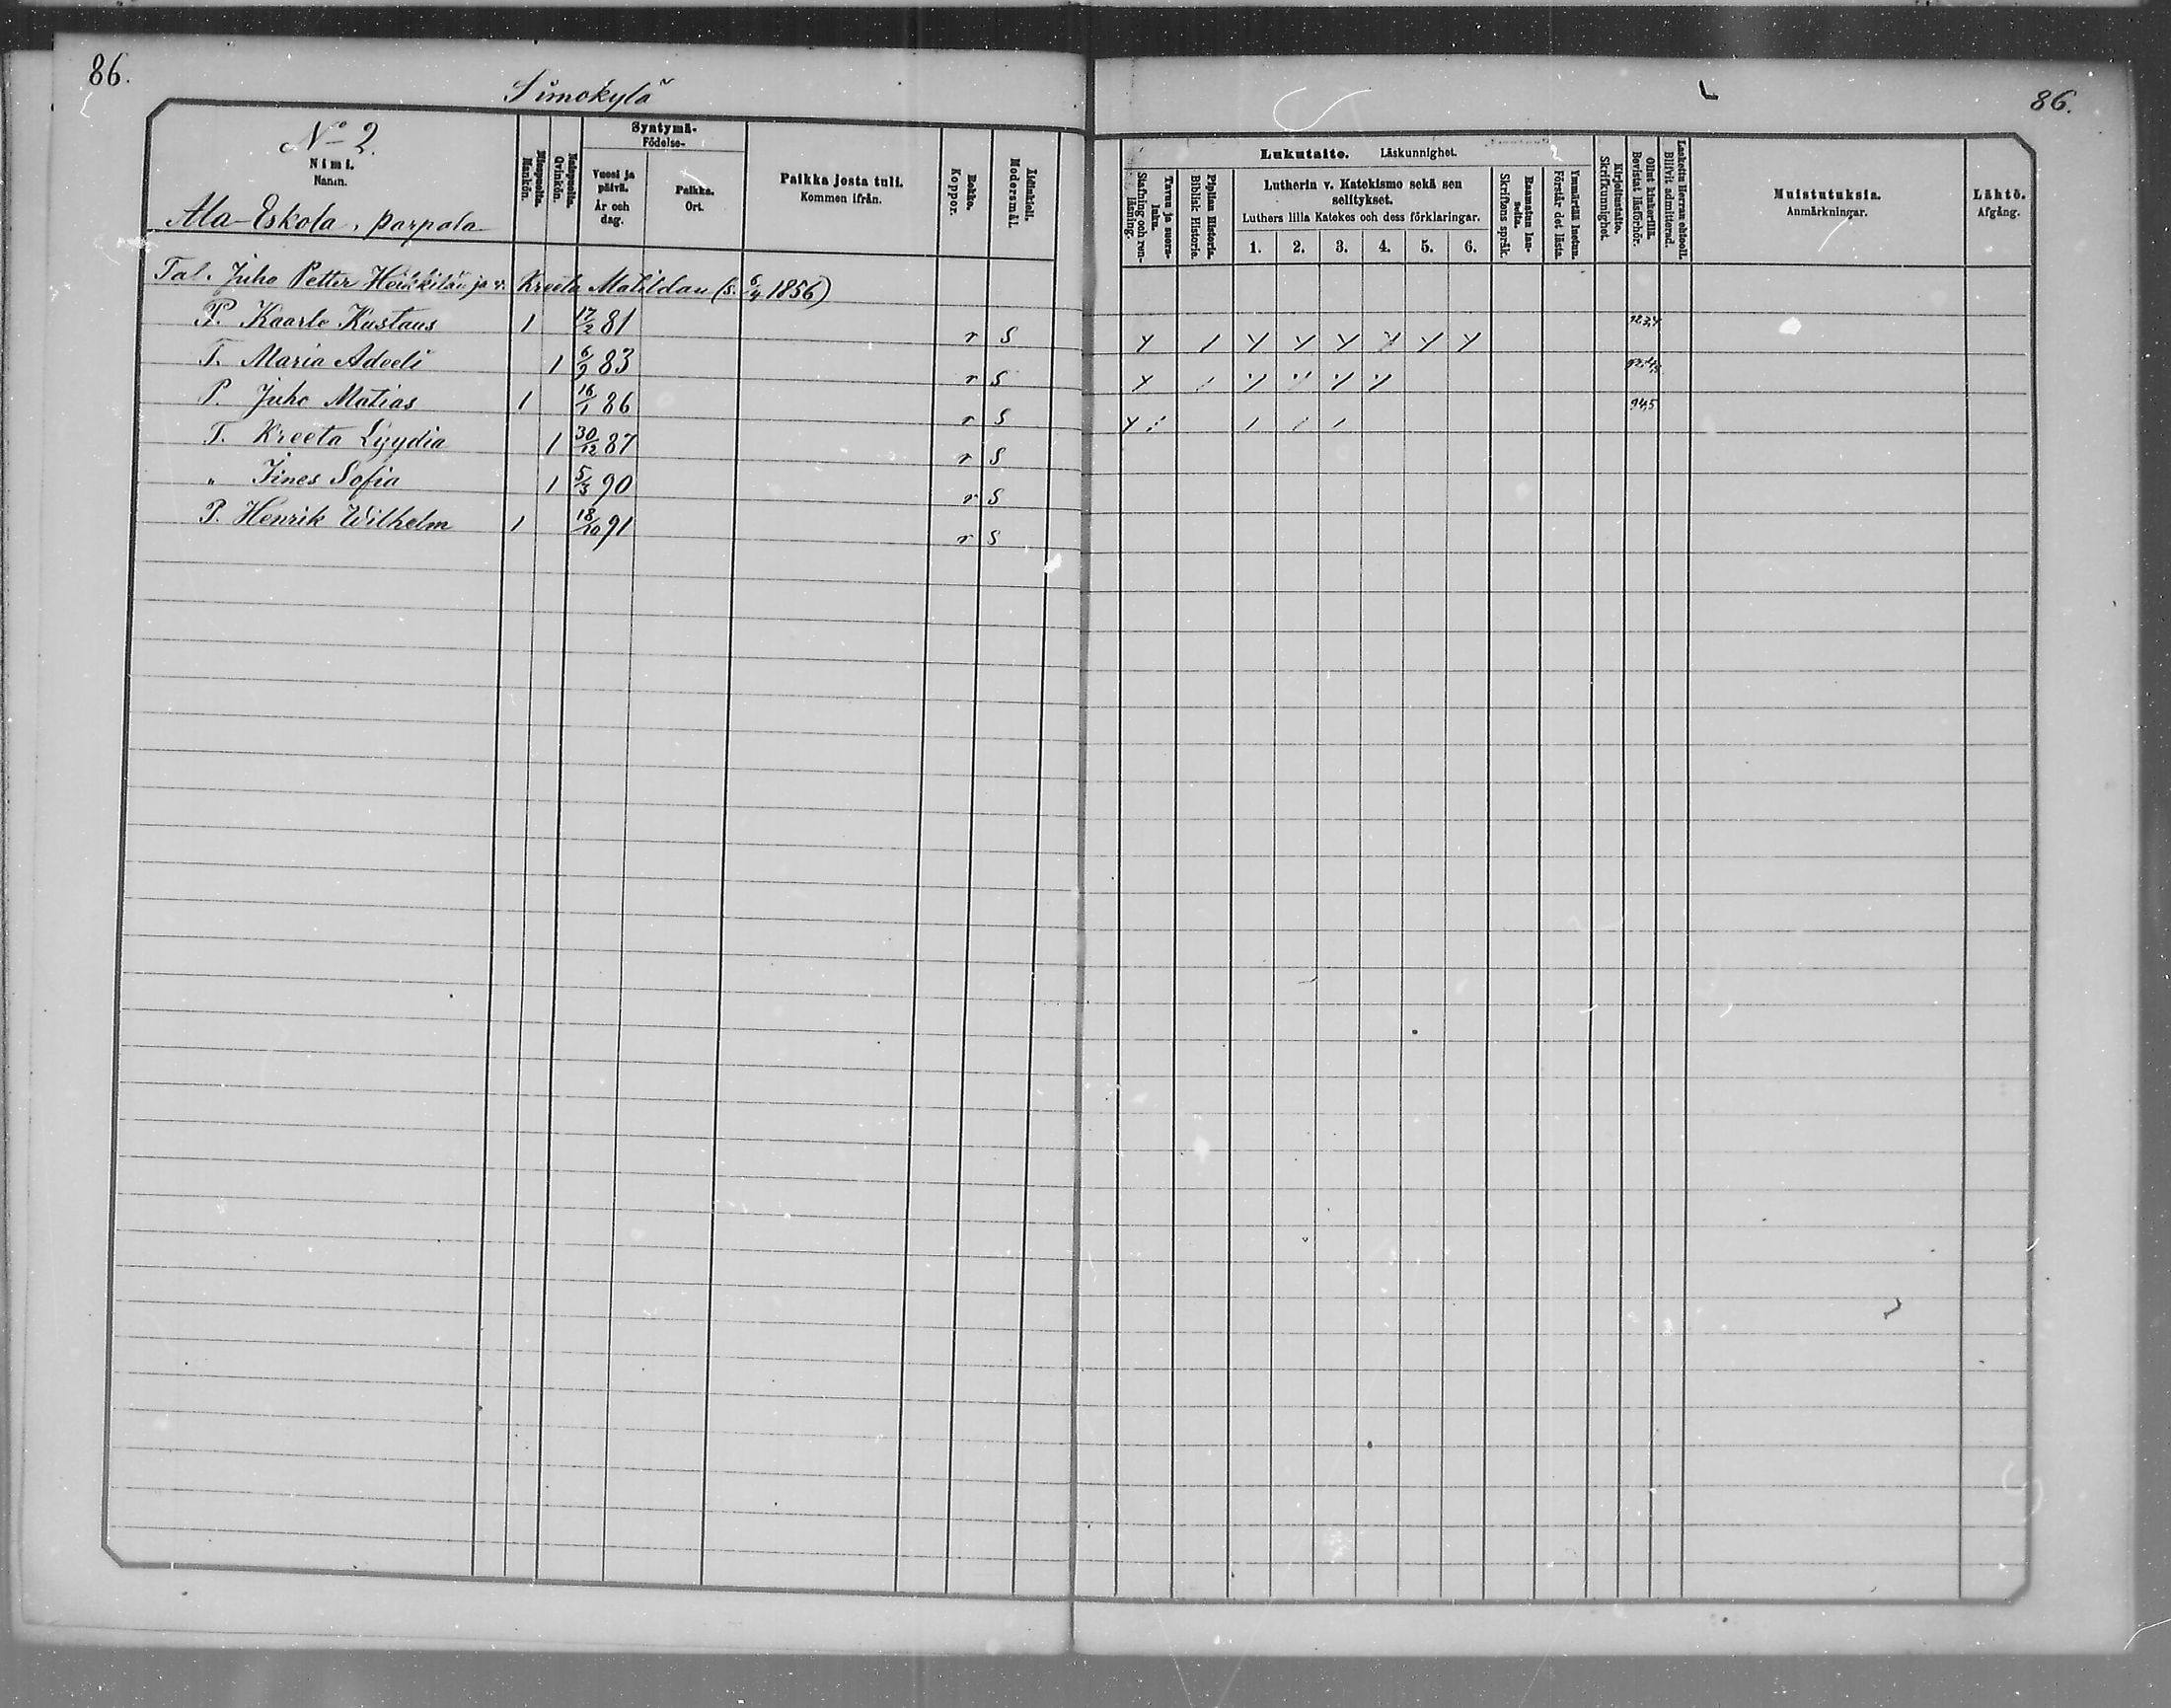 86.
Simokylä
86.
No 2.
Nimi.
Namn.
Ala-Eskola, parpala
Miespuolia.
Mankön.
Naispuolia.
Qvinkön.
Syntymä-
Födelse-
Vuosi ja päivä.
År och dag.
Paikka.
Ort.
Paikka josta tuli.
Kommen ifrån.
Rokko.
Koppor.
Äidinkieli.
Modersmål.
Lukutaito. Läskunnighet.
Tavuu ja suora-luku.
Stafning och ren-läsning.
Piplian Historia.
Biblisk Historie.
Lutherin v. Katekismo sekä sen
selitykset.
Luthers lilla Katekes och dess förklaringar.
1. 2. 3. 4. 5. 6.
Raamatun lau-seita.
Skriftens språk.
Ymmärtää luetun.
Förstår det lästa.
Kirjoitustaito.
Skrifkunnighet.
Ollut kinkerillä.
Bevistat läsförhör.
Laskettu Herran ehtool.
Blifvit admitterad.
Muistutuksia.
Anmärkningar.
Lähtö.
Afgång.
Tal. Juho Petter Heikkilän ja v. Kreeta Matildan (s. 6/4 1856)
P. Kaarle Kustaus 1 17/2 81 r S
T. Maria Adeeli 1 6/2 83 r S
P. Juho Matias 1 16/1 86 r S 94,5
T. Kreeta Lyydia 1 30/12 87 r S
" Iines Sofia 1 5/3 90 r S
P. Henrik Wilhelm 1 18/10 91 r S